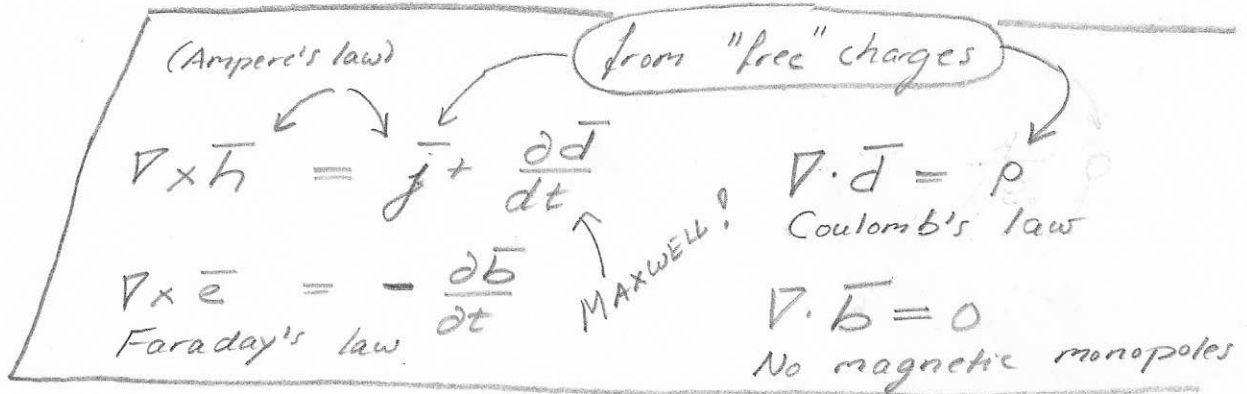 (Ampere's law)
from "free" charges
∇ × h̅ = j̅ + ∂d̅/dt
∇ · d̅ = ρ
Coulomb's law
MAXWELL!
∇ × e̅ = - ∂b̅/∂t
Faraday's law
∇ · b̅ = 0
No magnetic monopoles